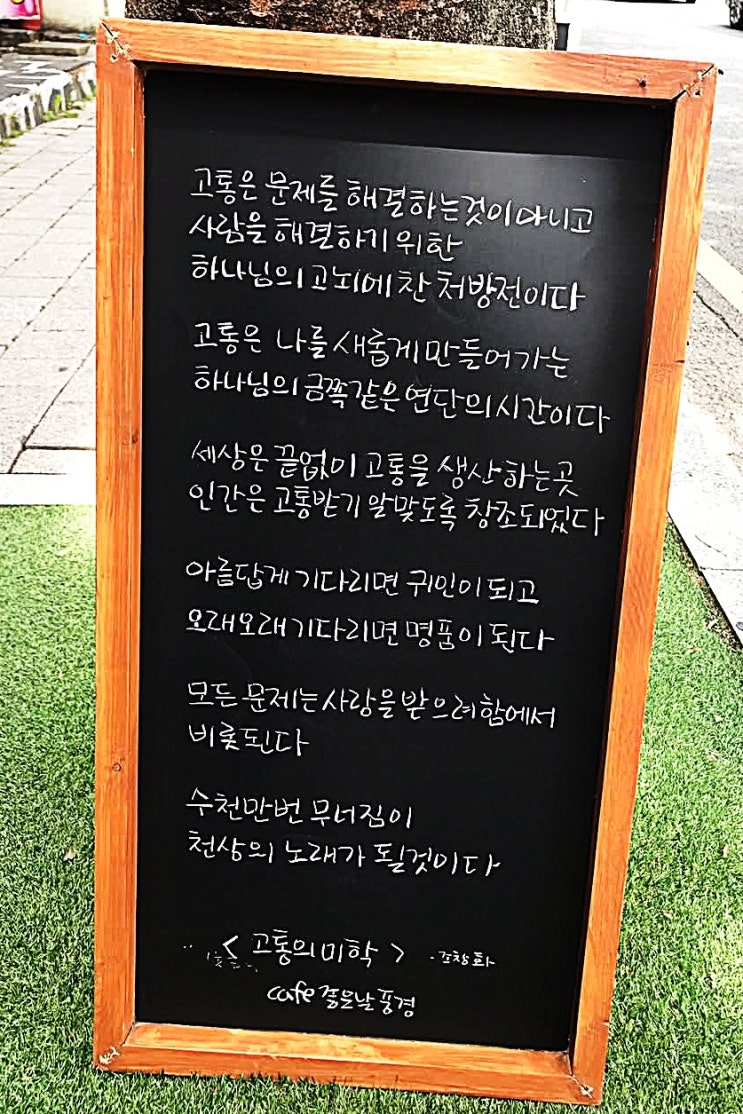 고통은 문제를 해결하는것이 아니고
사람을 해결하기 위한
하나님의 고뇌에 찬 처방전이다
고통은 나를 새롭게 만들어 가는
하나님의 금쪽같은 연단의 시간이다
세상은 끝없이 고통을 생산하는곳
인간은 고통받기 알맞도록 창조되었다
아름답게 기다리면 귀인이 되고
오래오래 기다리면 명품이 된다
모든 문제는 사랑을 받으려함에서
비롯된다
수천만번 무너짐이
천상의 노래가 될것이다
< 고통의 미학 > - 조창화
cafe 좋은날풍경